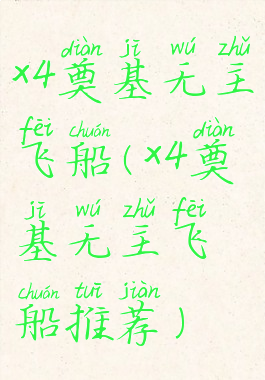 diàn jī wú zhǔ
x4奠基无主
fēi chuán diàn
飞船(x4奠
jī wú zhǔ fēi
基无主飞
chuán tuī jiàn
船推荐)